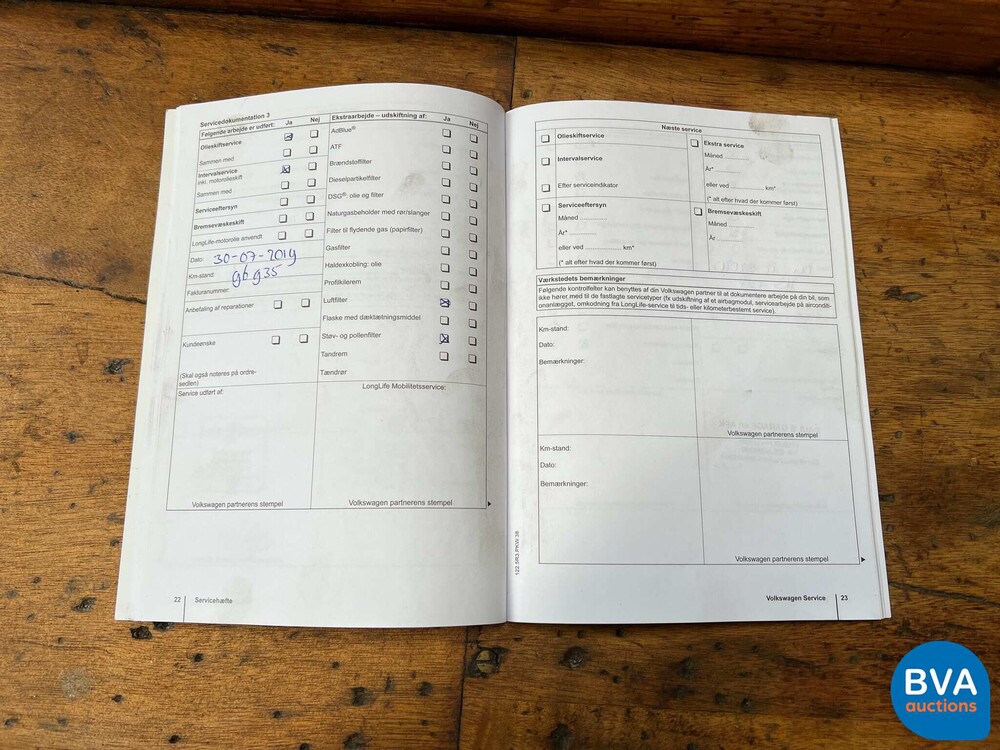 Servicedokumentation 3
Følgende arbejde er udført: Ja Nej
Olieskiftservice
Sammen med
Intervalservice
inkl. motorolieskift
Sammen med
Serviceeftersyn
Bremsevæskeskift
LongLife-motorolie anvendt
Dato: 30-07-2019
Km-stand: 96935
Fakturanummer:
Anbefaling af reparationer
Kundeønske
(Skal også noteres på ordre-
sedlen)
Service udført af:
Volkswagen partnerens stempel
Ekstraarbejde – udskiftning af: Ja Nej
AdBlue®
ATF
Brændstoffilter
Dieselpartikelfilter
DSG®: olie og filter
Naturgasbeholder med rør/slanger
Filter til flydende gas (papirfilter)
Gasfilter
Haldexkobling: olie
Profilkilerem
Luftfilter
Flaske med dæktætningsmiddel
Støv- og pollenfilter
Tandrem
Tændrør
LongLife Mobilitetsservice:
Volkswagen partnerens stempel
22 Servicehæfte
Næste service
Olieskiftservice
Intervalservice
Efter serviceindikator
Serviceeftersyn
Måned ............
År* ............
eller ved ................ km*
(* alt efter hvad der kommer først)
Ekstra service
Måned ............
År* ............
eller ved ............... km*
(* alt efter hvad der kommer først)
Bremsevæskeskift
Måned ............
År ............
Værkstedets bemærkninger
Følgende kontrolfelter kan benyttes af din Volkswagen partner til at dokumentere arbejde på din bil, som
ikke hører med til de fastlagte servicetyper (fx udskiftning af et airbagmodul, servicearbejde på airconditi-
onanlægget, omkodning fra LongLife-service til tids- eller kilometerbestemt service).
Km-stand:
Dato:
Bemærkninger:
Volkswagen partnerens stempel
Km-stand:
Dato:
Bemærkninger:
Volkswagen partnerens stempel
122.5R3.PKW.38
Volkswagen Service 23
BVA
auctions